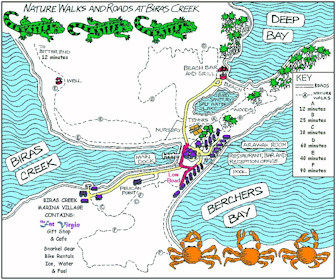 NATURE WALKS AND ROADS AT BIRAS CREEK
DEEP
BAY
TO
BITTER END
12 minutes
WELL
BEACH BAR
AND GRILL
KEY
ROADS
NATURE
WALKS
A
12 minutes
B
25 minutes
C
30 minutes
D
60 minutes
E
40 minutes
F
90 minutes
SALT WATER
TENNIS
NURSERY
MAIN
DOCK
ARAWAK ROOM
RESTAURANT, BAR AND
RECEPTION OFFICE
POOL
BIRAS
CREEK
PELICAN POINT
BERCHERS
BAY
BIRAS CREEK
MARINA VILLAGE
CONTAINS:
The Fat Virgin
Gift Shop
& Cafe
Snorkel Gear
Bike Rentals
Ice, Water
& Fuel